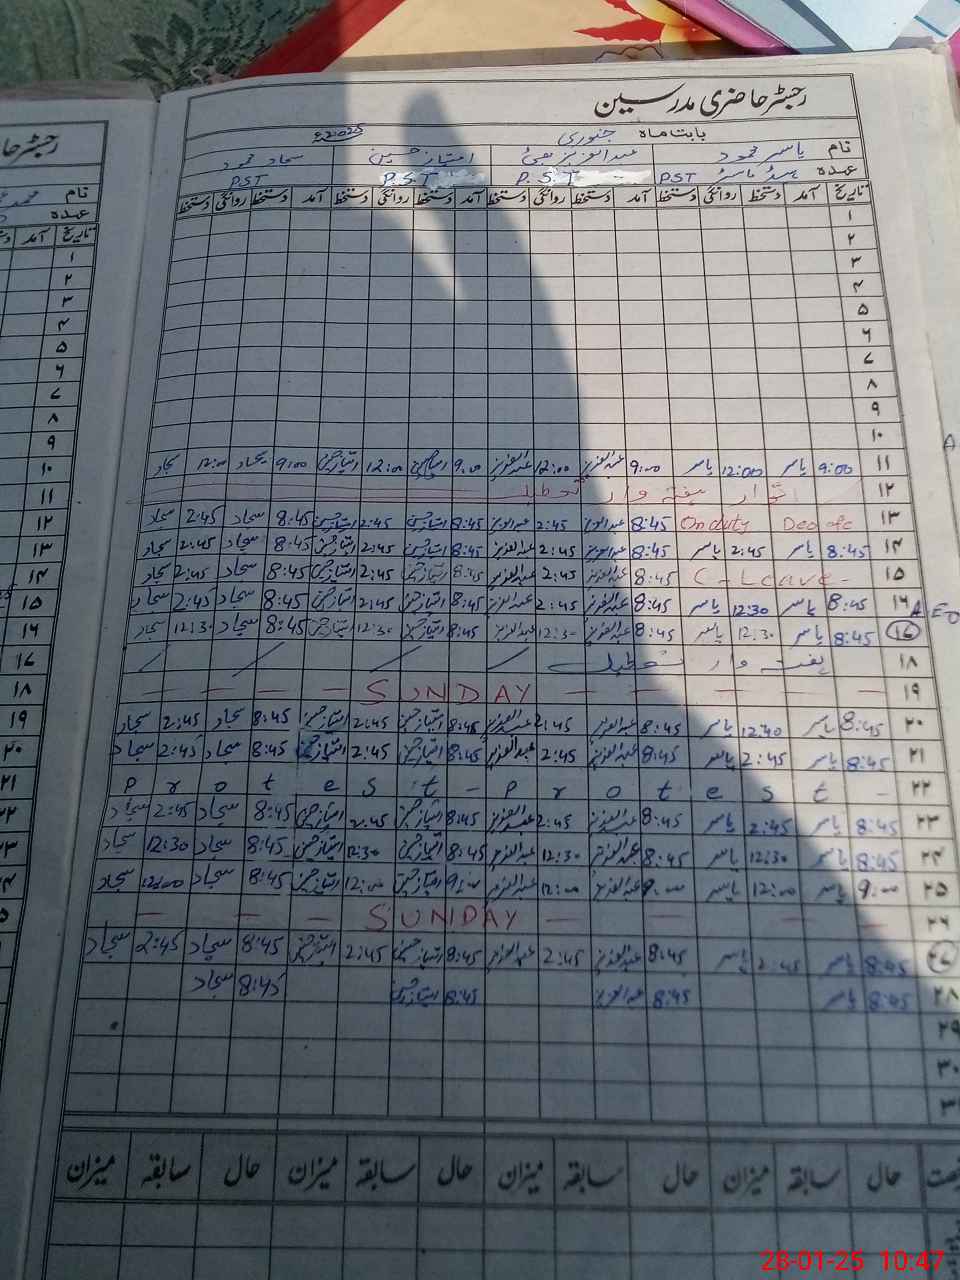 رجسٹر حاضری مدرسین
بابت ماہ جنوری 2025ء
نام یاسر محمود عبدالعزیز امتیاز حسین سجاد محمود
عہدہ PST P.S.T P.S.T PST
تاریخ آمد دستخط روانگی دستخط آمد دستخط روانگی دستخط آمد دستخط روانگی دستخط آمد دستخط روانگی دستخط
۱
۲
۳
۴
۵
۶
۷
۸
۹
۱۰
۱۱ 9:00 یاسر 12:00 یاسر 9:00 عبدالعزیز 12:00 عبدالعزیز 9:00 امتیاز حسین 12:00 امتیاز حسین 9:00 سجاد 12:00 سجاد
۱۲ اتوار ہفتہ وار تعطیل
۱۳ On duty Deo ofc 8:45 عبدالعزیز 2:45 عبدالعزیز 8:45 امتیاز حسین 2:45 امتیاز حسین 8:45 سجاد 2:45 سجاد
۱۴ 8:45 یاسر 2:45 یاسر 8:45 عبدالعزیز 2:45 عبدالعزیز 8:45 امتیاز حسین 2:45 امتیاز حسین 8:45 سجاد 2:45 سجاد
۱۵ C-Leave- 8:45 عبدالعزیز 2:45 عبدالعزیز 8:45 امتیاز حسین 2:45 امتیاز حسین 8:45 سجاد 2:45 سجاد
۱۶ 8:45 یاسر 12:30 یاسر 8:45 عبدالعزیز 2:45 عبدالعزیز 8:45 امتیاز حسین 2:45 امتیاز حسین 8:45 سجاد 2:45 سجاد
۱۷ 8:45 یاسر 12:30 یاسر 8:45 عبدالعزیز 12:30 عبدالعزیز 8:45 امتیاز حسین 12:30 امتیاز حسین 8:45 سجاد 12:30 سجاد
۱۸ ہفتہ وار تعطیل
۱۹ SUNDAY
۲۰ 8:45 یاسر 12:40 یاسر 8:45 عبدالعزیز 2:45 عبدالعزیز 8:45 امتیاز حسین 2:45 امتیاز حسین 8:45 سجاد 2:45 سجاد
۲۱ 8:45 یاسر 2:45 یاسر 8:45 عبدالعزیز 2:45 عبدالعزیز 8:45 امتیاز حسین 2:45 امتیاز حسین 8:45 سجاد 2:45 سجاد
۲۲ Protest - Protest -
۲۳ 8:45 یاسر 2:45 یاسر 8:45 عبدالعزیز 2:45 عبدالعزیز 8:45 امتیاز حسین 2:45 امتیاز حسین 8:45 سجاد 2:45 سجاد
۲۴ 8:45 یاسر 12:30 یاسر 8:45 عبدالعزیز 12:30 عبدالعزیز 8:45 امتیاز حسین 12:30 امتیاز حسین 8:45 سجاد 12:30 سجاد
۲۵ 9:00 یاسر 12:00 یاسر 9:00 عبدالعزیز 12:00 عبدالعزیز 9:00 امتیاز حسین 12:00 امتیاز حسین 8:45 سجاد 12:00 سجاد
۲۶ SUNDAY
۲۷ 8:45 یاسر 2:45 یاسر 8:45 عبدالعزیز 2:45 عبدالعزیز 8:45 امتیاز حسین 2:45 امتیاز حسین 8:45 سجاد 2:45 سجاد
۲۸ 8:45 یاسر 8:45 عبدالعزیز 8:45 امتیاز حسین 8:45 سجاد
۲۹
۳۰
حال سابقہ میزان حال سابقہ میزان حال سابقہ میزان حال سابقہ میزان
نام
عہدہ
تاریخ آمد
۱
۲
۳
۴
۵
۶
۷
۸
۹
۱۰
۱۱
۱۲
۱۳
۱۴
۱۵
۱۶
۱۷
۱۸
۱۹
۲۰
۲۱
28-01-25 10:47